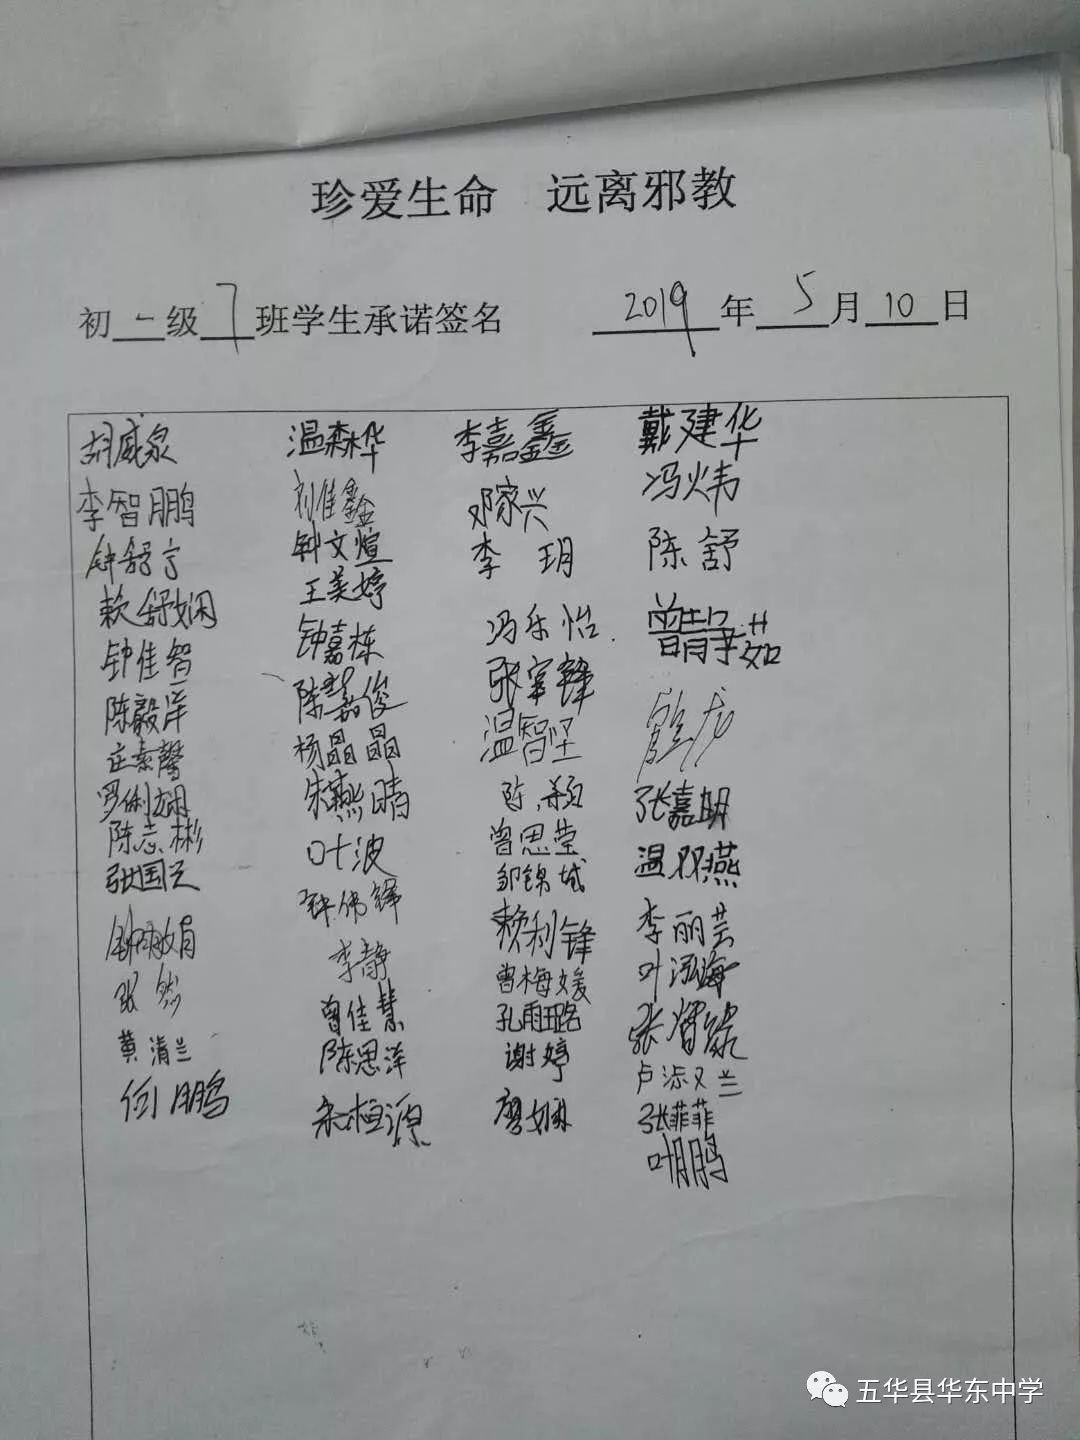 珍爱生命 远离邪教
初一级7班学生承诺签名 2019年5月10日
胡威泉 温森桦 李嘉鑫 戴建华
李智鹏 刘佳鑫 邓家兴 冯火炜
钟舒宁 钟文煊 李玥 陈舒
赖舒娴 王美婷 冯乐怡
钟佳智 钟嘉栋 张军锋
陈毅洋 陈嘉俊 温智坚
庄素馨 杨晶晶 张嘉明
朱燕晴 曾思莹 温双燕
陈志彬 叶波 邹锦城 李丽芸
张国兰 钟伟铎 赖利锋 叶泓海
李静 曾梅媛
曾佳慧 孔雨璐 卢添兰
黄清兰 陈思洋 谢婷 张菲菲
何鹏 廖娴 叶鹏
五华县华东中学